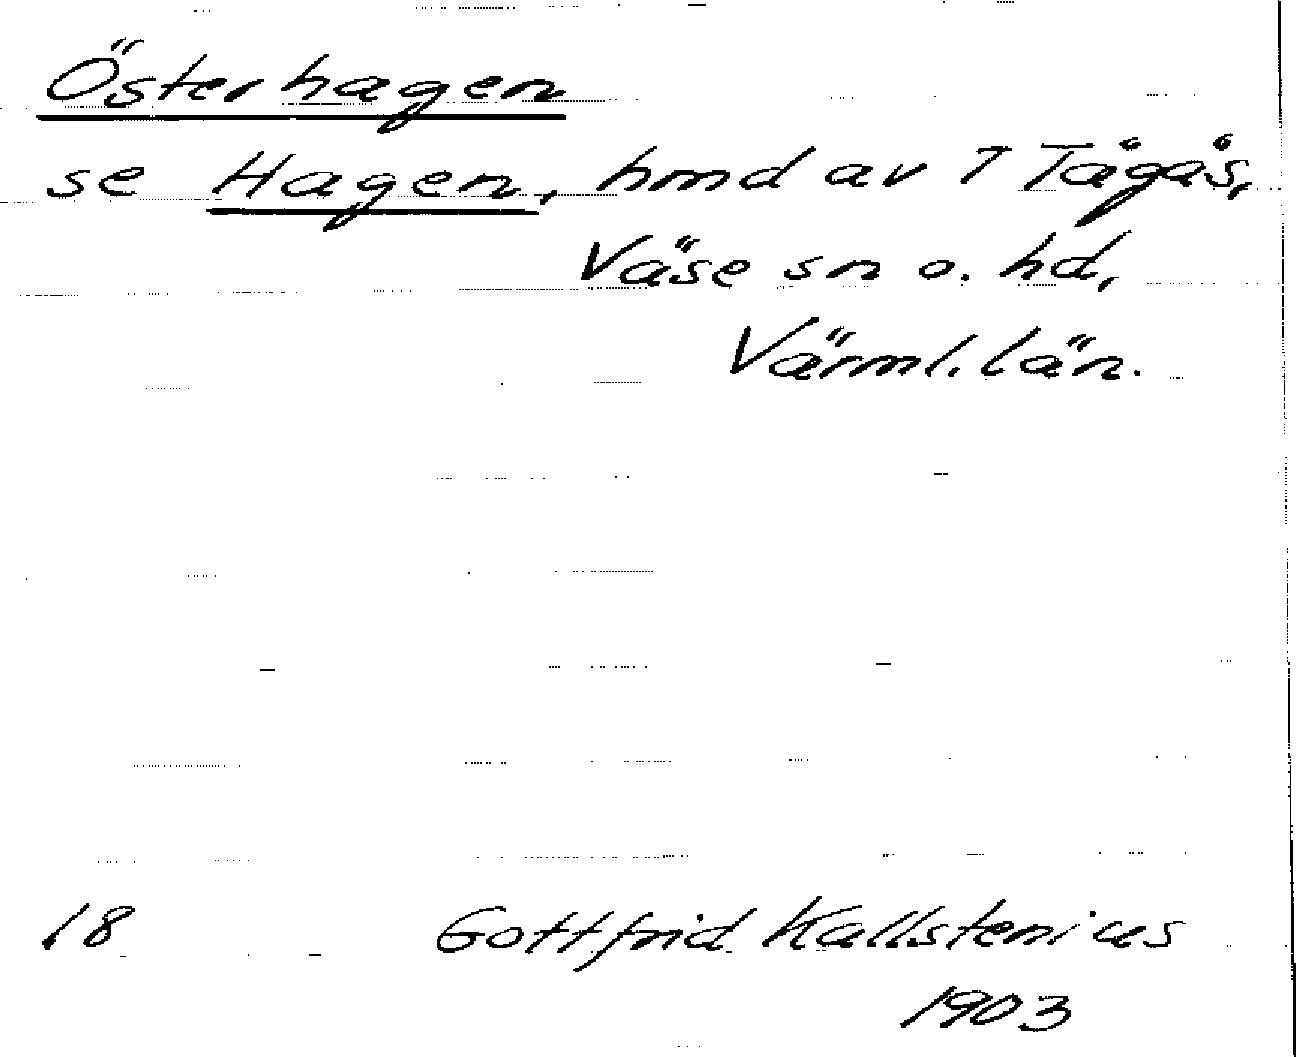 Österhagen
se Hagen, hmd av 7 Tågås,
Väse sn o. hd,
Värml. län.
18 Gottfrid Kallstenius
1903